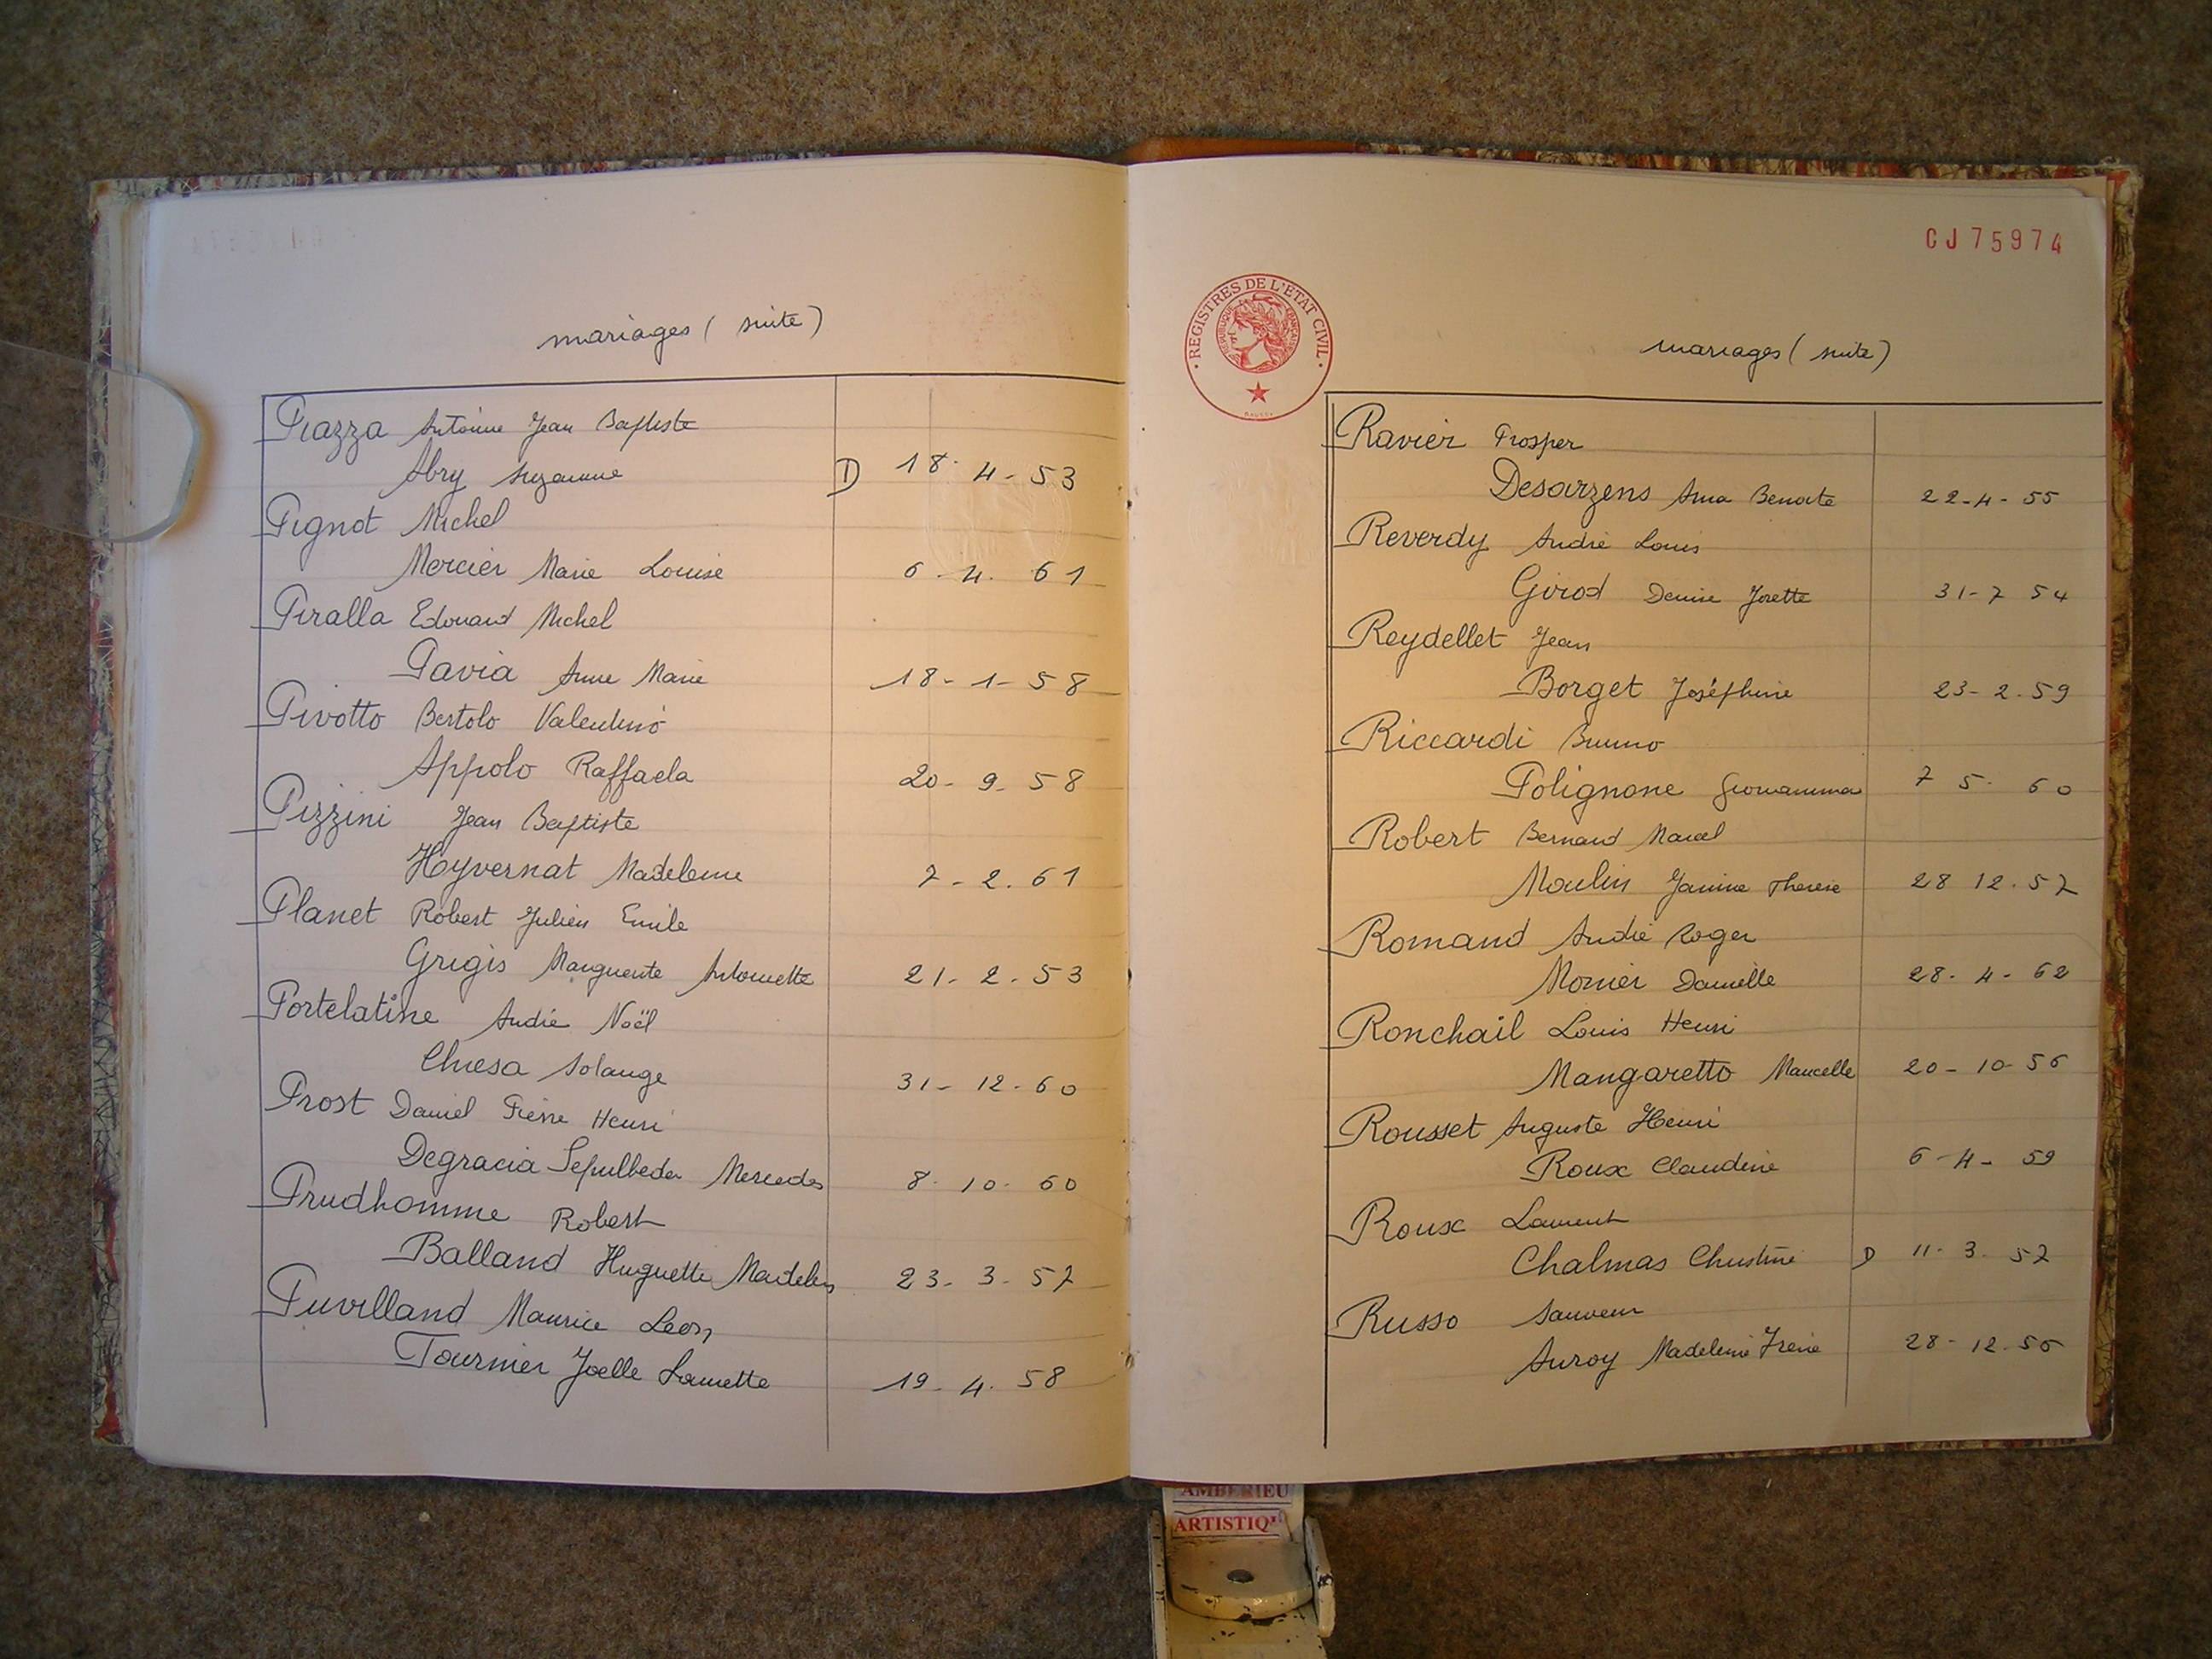 mariages (suite)
Piazza Antoine Jean Baptiste
Abry Suzanne D 18-4-53
Pignot Michel
Mercier Marie Louise 6-4-61
Piralla Edouard Michel
Pavia Anne Marie 18-1-58
Pivotto Bertolo Valentino
Appolo Raffaela 20-9-58
Pizzini Jean Baptiste
Hoyvernat Madeleine 7-2-61
Planet Robert Julien Emile
Grigis Marguerite Antoinette 21-2-53
Portelatine André Noël
Chiesa Solange 31-12-60
Prost Daniel Pierre Henri
Degracia Mercedes 8-10-60
Prudhomme Robert
Balland Huguette 23-3-57
Puvilland Maurice Leon
Tournier Joelle Laurette 19-4-58
CJ75974
REGISTRES DE L'ETAT CIVIL
REPUBLIQUE FRANCAISE
mariages (suite)
Ravier Prosper
Desarzens Ana Benoite 22-4-55
Reverdy André Louis
Girod Denise Josette 31-7 54
Reydellet Jean
Borget Joséphine 23-2-59
Riccardi Bruno
Polignone Giovannina 7 5 60
Robert Bernard Marcel
Moulin Janine Therese 28 12-57
Romand André Roger
Monier Danielle 28-4-62
Ronchail Louis Henri
Mangaretto Marcelle 20-10-56
Rousset Auguste Henri
Roux Claudine 6-4-59
Roux Laurent
Chalmas Christine D 11-3-57
Russo Sauveur
Auroy Madeleine Irène 28-12-56
AMBERIEU
ARTISTIQ'